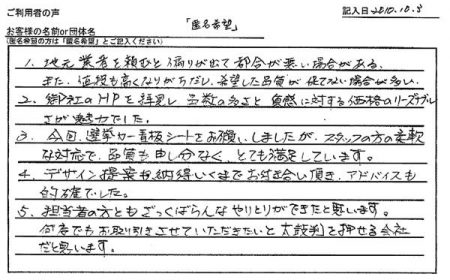 ご利用者の声
記入日 2010.10.8
お客様の名前or団体名
(匿名希望の方は「匿名希望」とご記入ください)
「匿名希望」
1. 地元業者を頼むと偏りが出て都合が悪い場合がある。
また、値段も高くなりがちだし、希望した品質が保てない場合が多い。
2. 御社のHPを拝見し 品数の多さと 質感に対する価格のリーズナブル
さが魅力でした。
3. 今回、選挙カー看板シートをお願いしましたが、スタッフの方の柔軟
な対応で、品質も申し分なく、とても満足しています。
4. デザイン提案も納得いくまでお付き合い頂き、アドバイスも
的確でした。
5. 担当者の方ともざっくばらんなやりとりができたと思います。
何度でもお取り引きさせていただきたいと 太鼓判を押せる会社
だと思います。